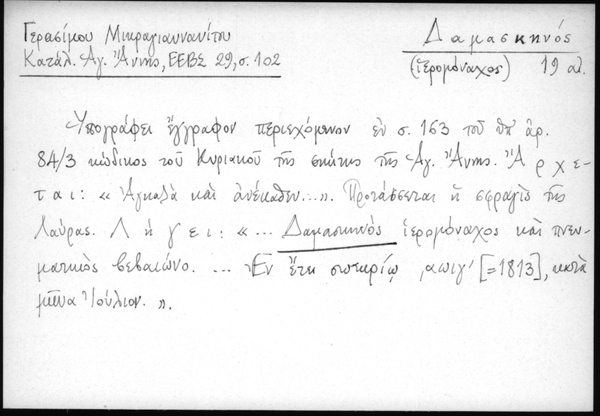 Γερασίμου Μικραγιαννανίτου
Κατάλ. Ἁγ. Ἄννης, ΕΕΒΣ 29, σ. 102
Δαμασκηνός
(ἱερομόναχος) 19 αἰ.
Ὑπογράφει ἔγγραφον περιεχόμενον ἐν σ. 163 τοῦ ὑπ' ἀρ.
84/3 κώδικος τοῦ Κυριακοῦ τῆς σκήτης τῆς Ἁγ. Ἄννης. Ἄρχε-
ται: « καὶ ἀνέκαθεν...». Προτάσσεται ἡ σφραγὶς τῆς
Λαύρας. Λήγει: «... Δαμασκηνὸς ἱερομόναχος καὶ πνευ-
ματικὸς βεβαιώνω. ... Ἐν ἔτει σωτηρίῳ ͵αωιγ' [=1813], κατὰ
μῆνα Ἰούλιον.».